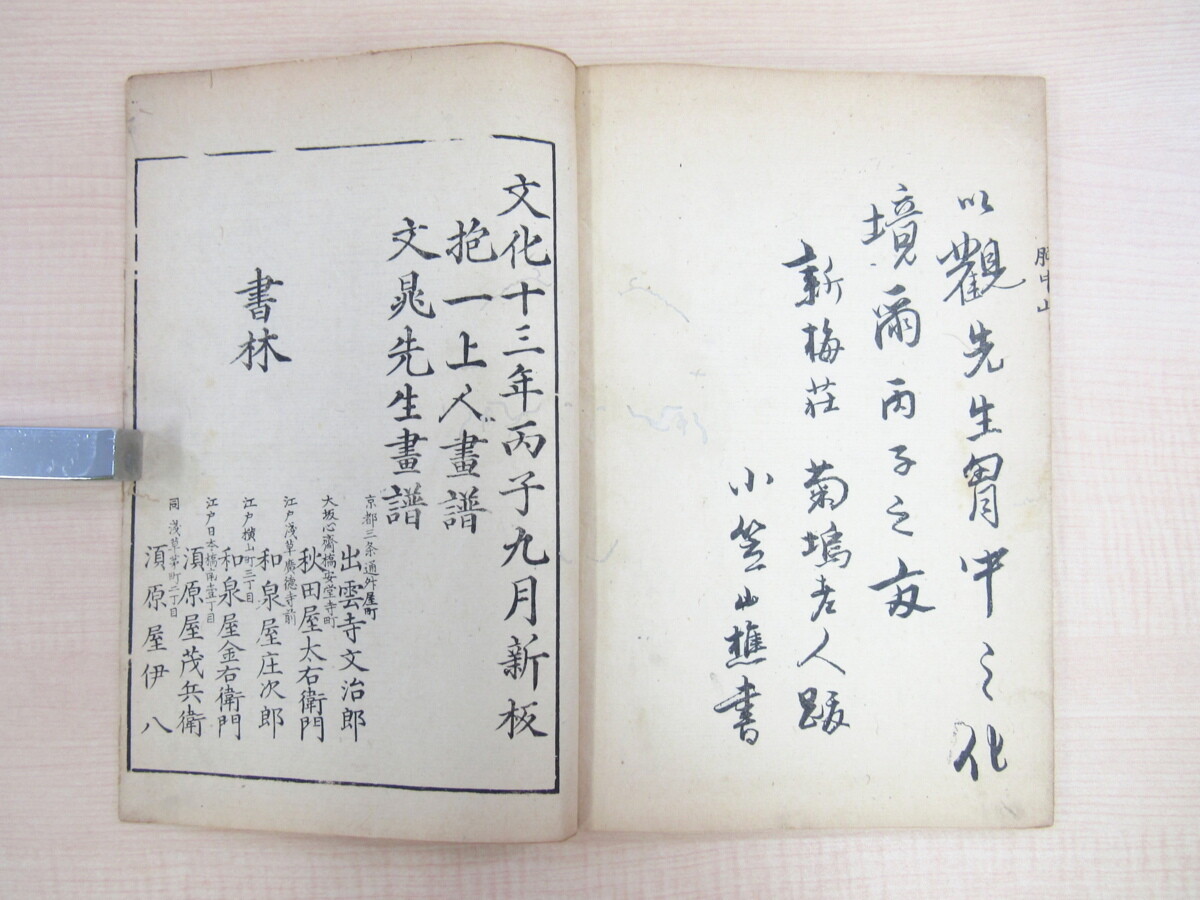 以觀先生胷中之化
境爾丙子之夏
新梅荘 菊塢老人跋
小笠山樵書
胸中山
文化十三年丙子九月新板
抱一上人畫譜
文晁先生畫譜
書林
京都三条通升屋町
出雲寺文治郎
大坂心齋橋安堂寺町
秋田屋太右衛門
江戸浅草廣徳寺前
和泉屋庄次郎
江戸横山町三丁目
和泉屋金右衛門
江戸日本橋南壹丁目
須原屋茂兵衛
同 浅草茅町二丁目
須原屋伊八